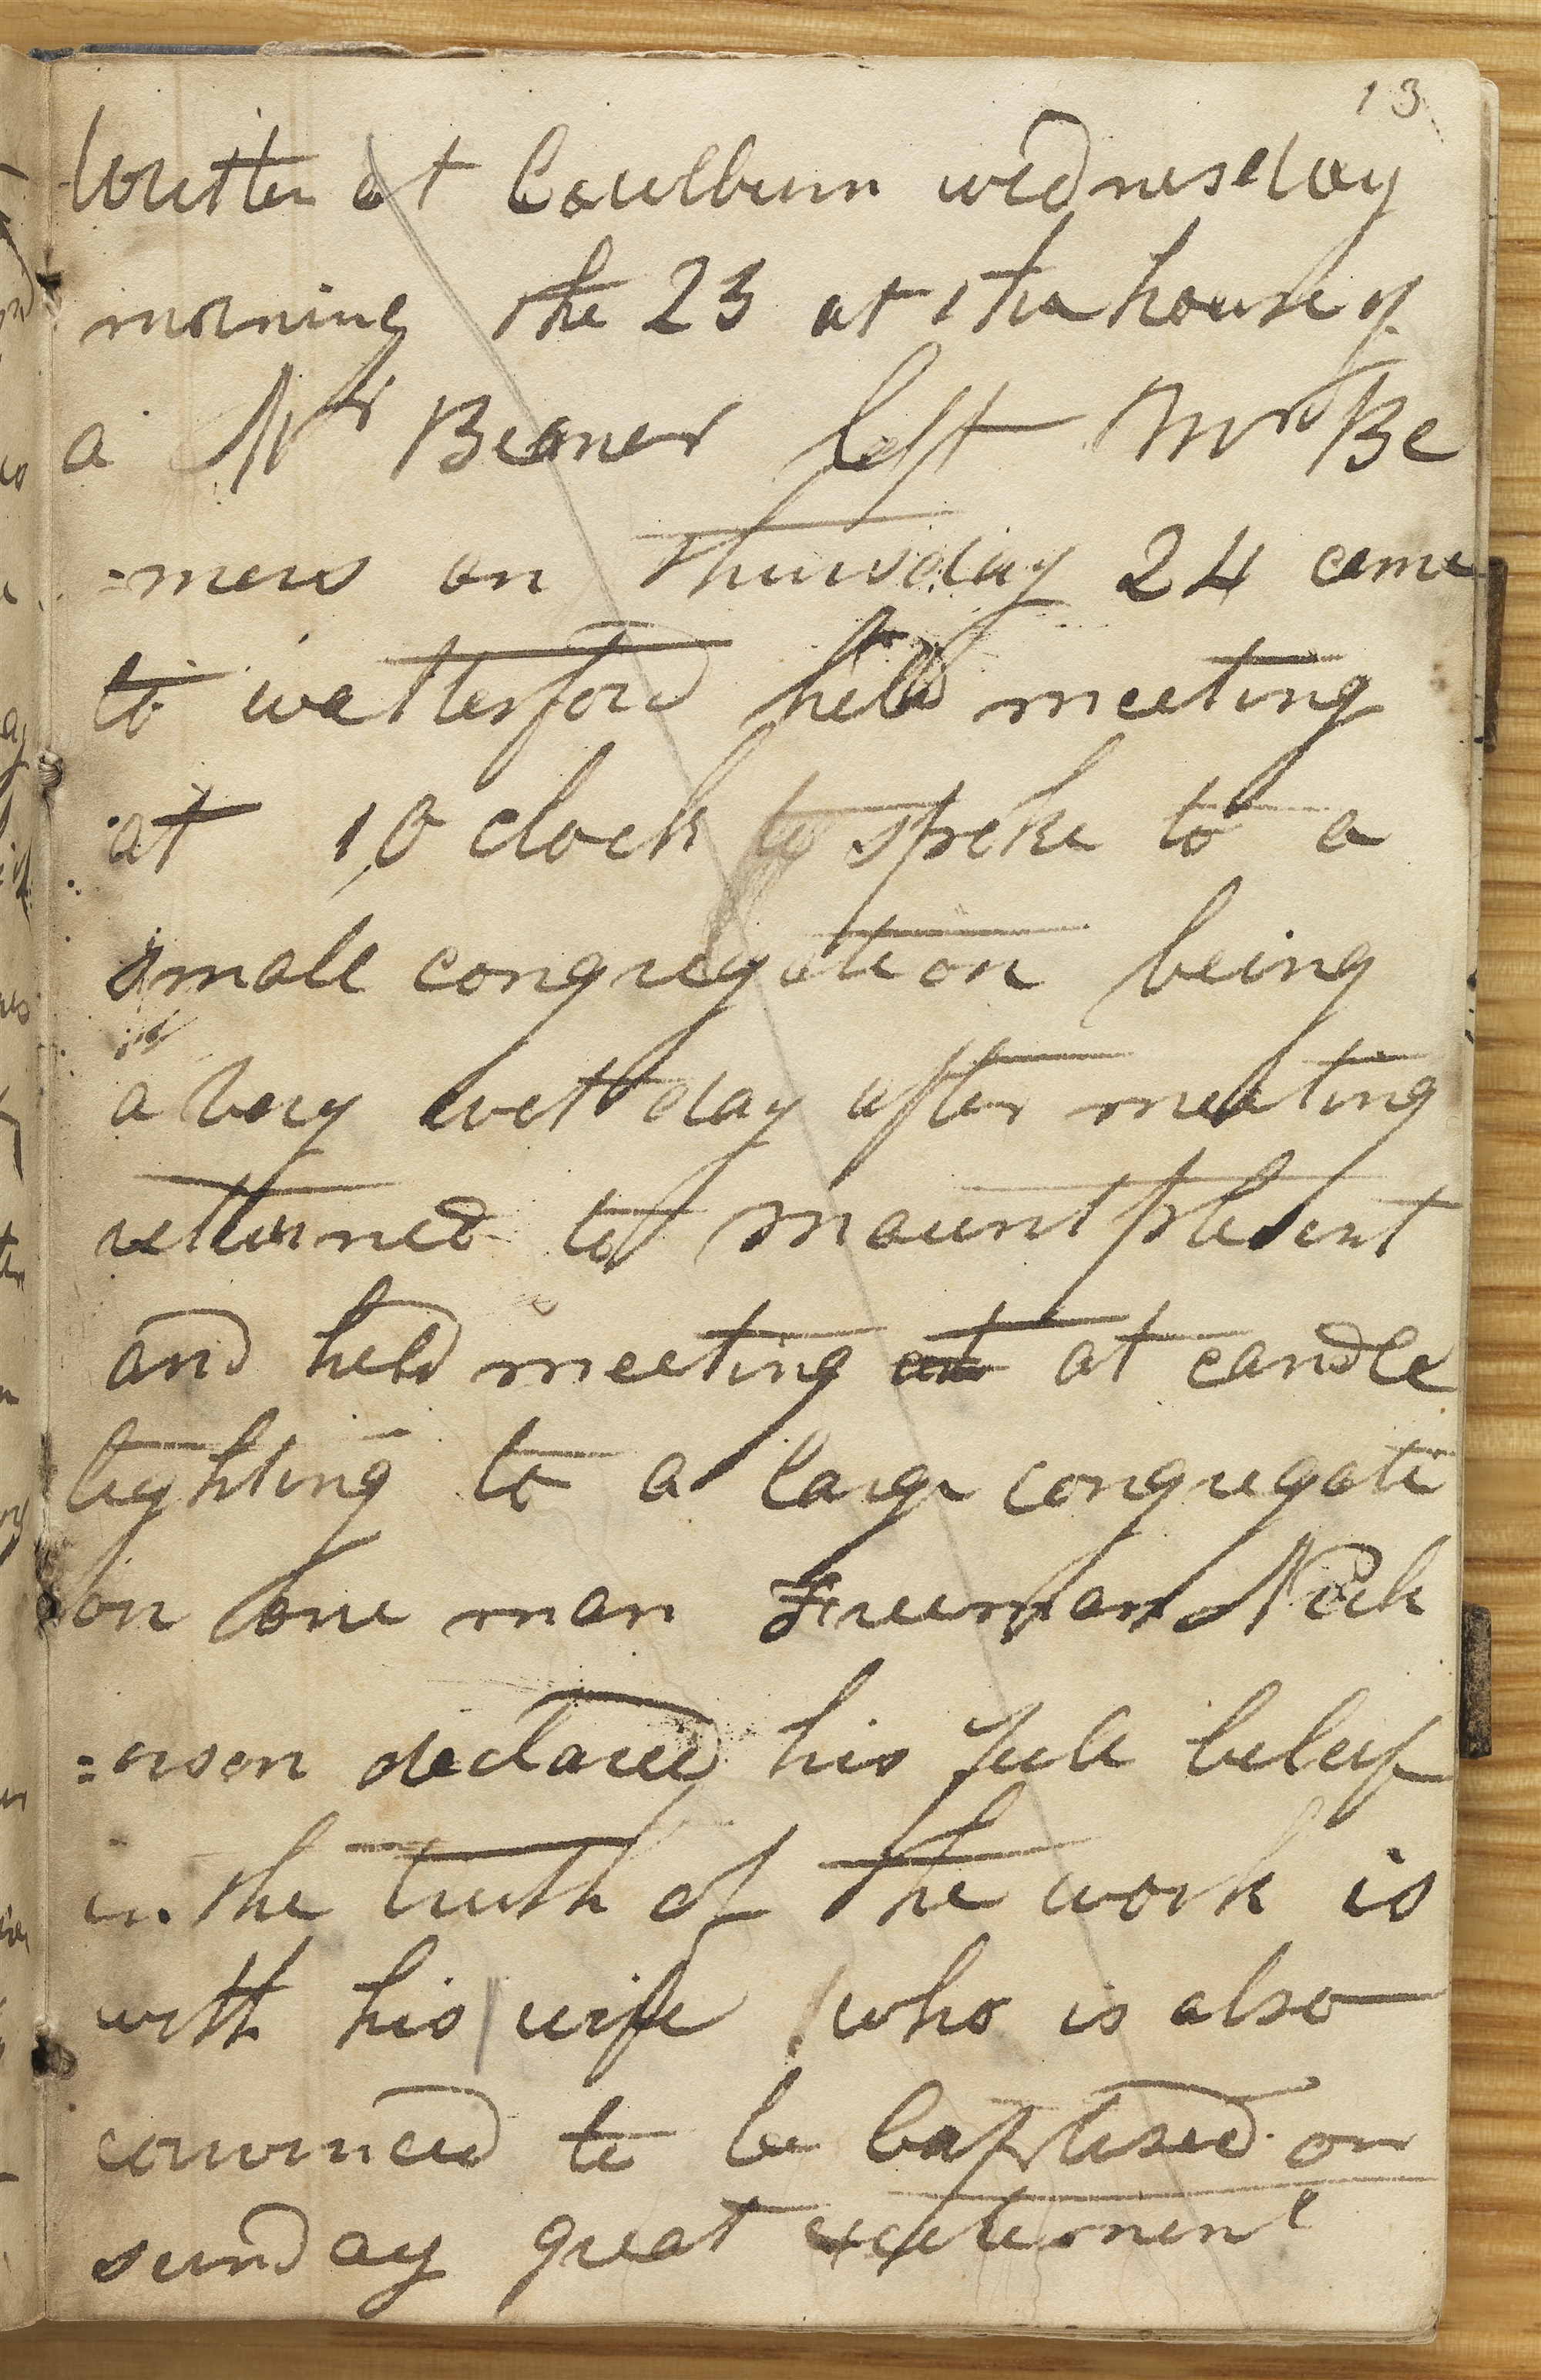 13
Written at Coulburn wednesday
morning the 23 at the house of
a Mr Beamer left Mr Be
=mers on Thursday 24 came
to watterford held meeting
at 10 clock spoke to a
small congregation being
a very wett day after meeting
retturned to mount plesent
and held meeting at at candle
lighting to a large congregati
on one man Freeman Nick
=erson declared his full beleif
in the truth of the work is
with his wife who is also
convinced to be baptised on
sunday great excitement